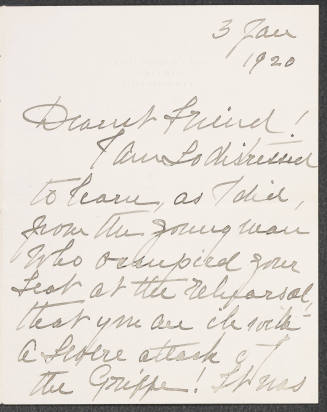 3 Jan
1920
Dearest Friend!
I am So distressed
to learn, as I did,
from the young man
Who occupied your
Seat at the Rehearsal,
that you are ill with
a Severe attack of
the Grippe! It was